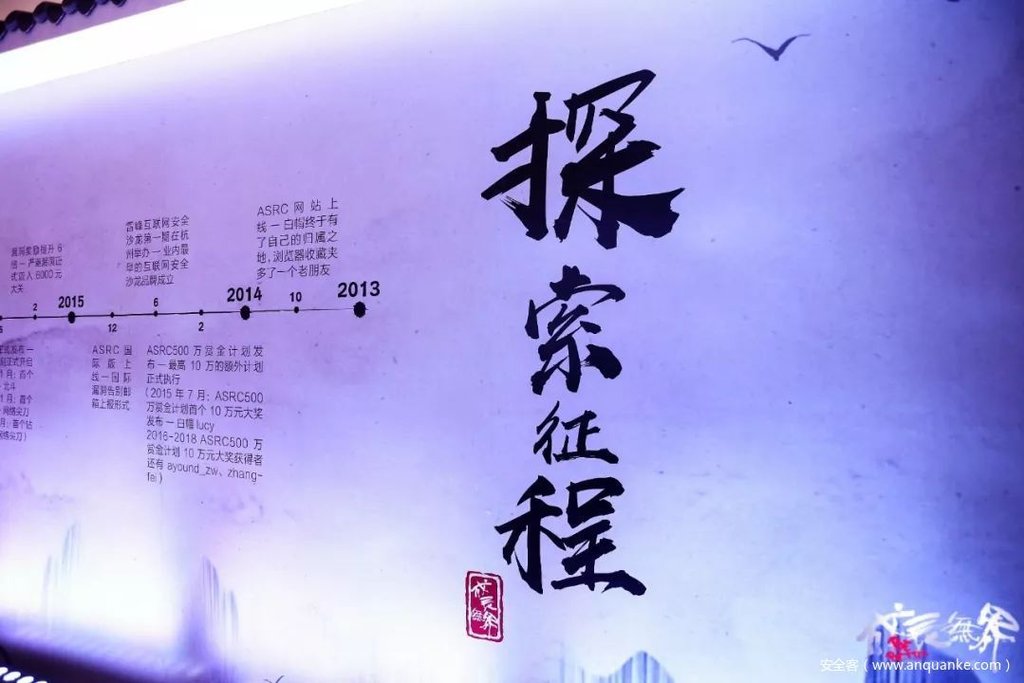 探
索
征
程
漏洞奖励提升 6
倍 — 严重漏洞正
式迈入 6000 元
大关
雷峰互联网安全
沙龙第一期在杭
州举办 — 业内最
早的互联网安全
沙龙品牌成立
ASRC 网站上
线 — 白帽终于有
了自己的归属之
地，浏览器收藏夹
多了一个老朋友
2 2015 6 2014 10 2013
12 2
1 月：首个
- 北斗
1 月：首个
- 网络尖刀
网络尖刀）
ASRC 国
际版上
线 — 国际
漏洞告别邮
箱上报形式
ASRC500 万赏金计划发
布 — 最高 10 万的额外计划
正式执行
（2015 年 7 月：ASRC500
万赏金计划首个 10 万元大奖
发布 — 白帽 lucy
2016-2018 ASRC500 万
赏金计划 10 万元大奖获得者
还有 ayound_zw、zhang-
fei）
無界
無界
安全客（www.anquanke.com）